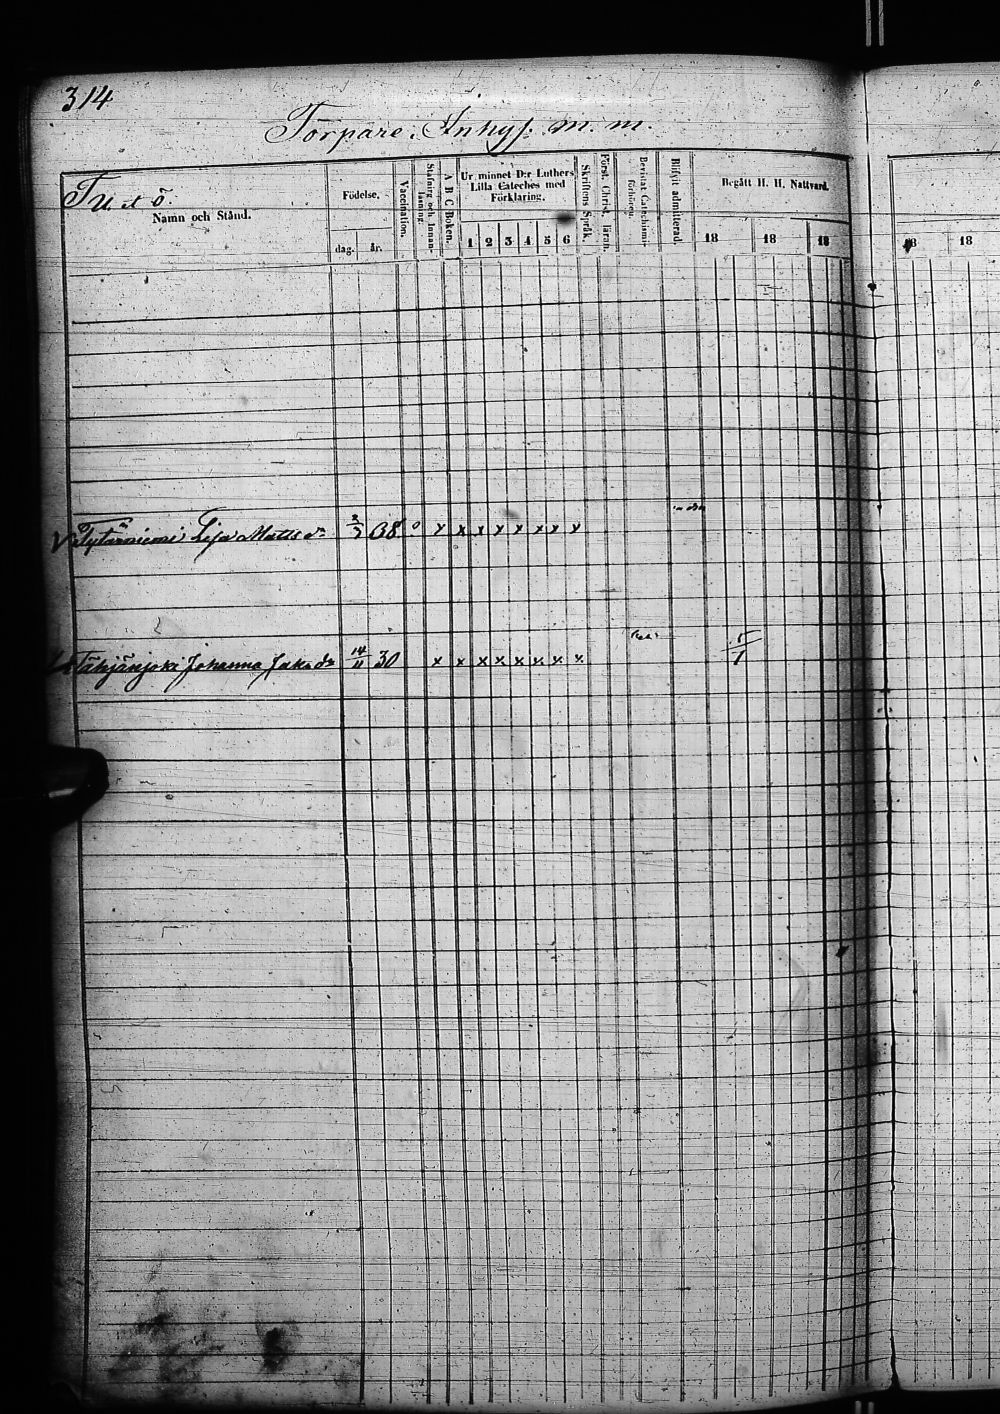 314
Torpare, Inhys. m. m.
T, U. et Ö.
Namn och Stånd.
Födelse.
dag.
år.
Vaccination.
Stafning och Innan-
läsning.
A B C Boken.
Ur minnet D:r Luthers
Lilla Cateches med
Förklaring.
1 2 3 4 5 6
Skriftens Språk.
Först. Christ. läran.
Bevistat Catechismi-
förhören.
Blifvit admitterad.
Begått H. H. Nattvard.
18 18 18
18 18
V Lisa Matts dr 2/7 38 0 x x x x x x x x
Johanna Jaks dr 14/11 30 x x x x x x x x